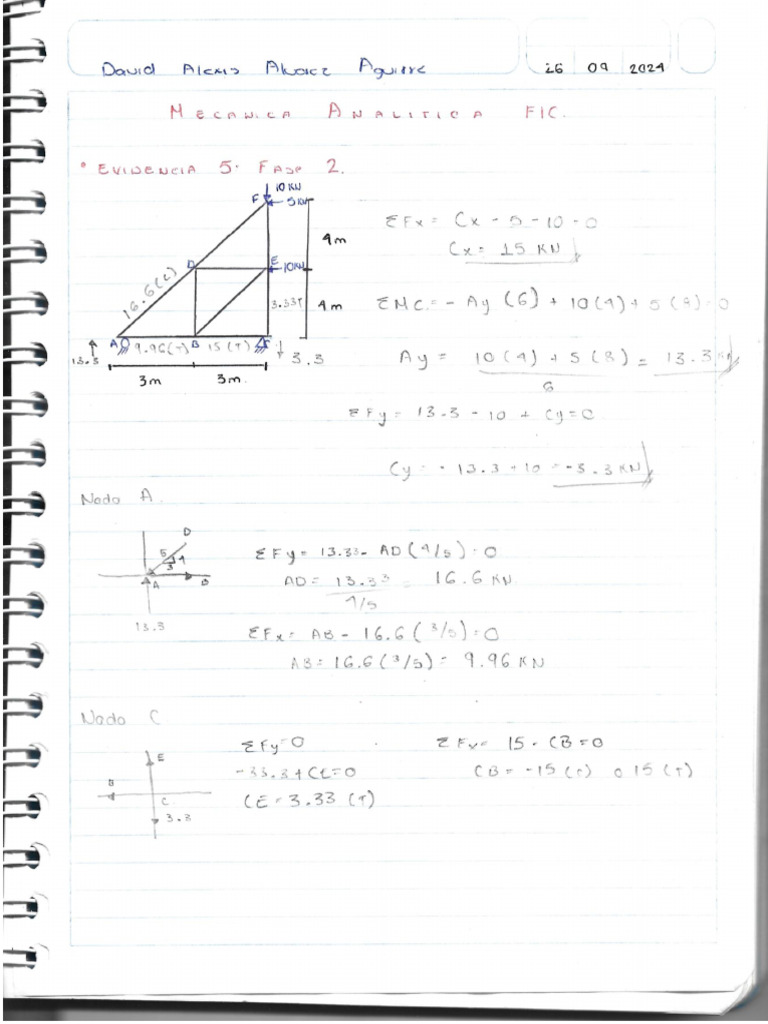 David Alexis Alvarez Aguirre
26 09 2024
MECANICA ANALITICA FIC.
• EVIDENCIA 5. FASE 2.
10 KN
F
5 KN
4m
D
E
10KN
16.6(C)
3.33T
4m
A
9.96(T)
B
15 (T)
13.3
3.3
3m
3m
ΣFx= Cx - 5 - 10 = 0
Cx = 15 KN
ΣMC= - Ay (6) + 10(4) + 5(8) = 0
Ay = 10(4) + 5(8) = 13.3 KN
6
ΣFy= 13.3 - 10 + Cy = 0
Cy = - 13.3 + 10 = -3.3 KN
Nodo A.
D
5
4
3
A
B
13.3
ΣFy= 13.33 - AD(4/5) = 0
AD = 13.33 = 16.6 KN
4/5
ΣFx= AB - 16.6 (3/5) = 0
AB = 16.6(3/5) = 9.96 KN
Nodo C
E
B
C
3.3
ΣFy=0
-33.3 + CE=0
CE = 3.33 (T)
ΣFx= 15 - CB = 0
CB = -15 (T) o 15 (T)